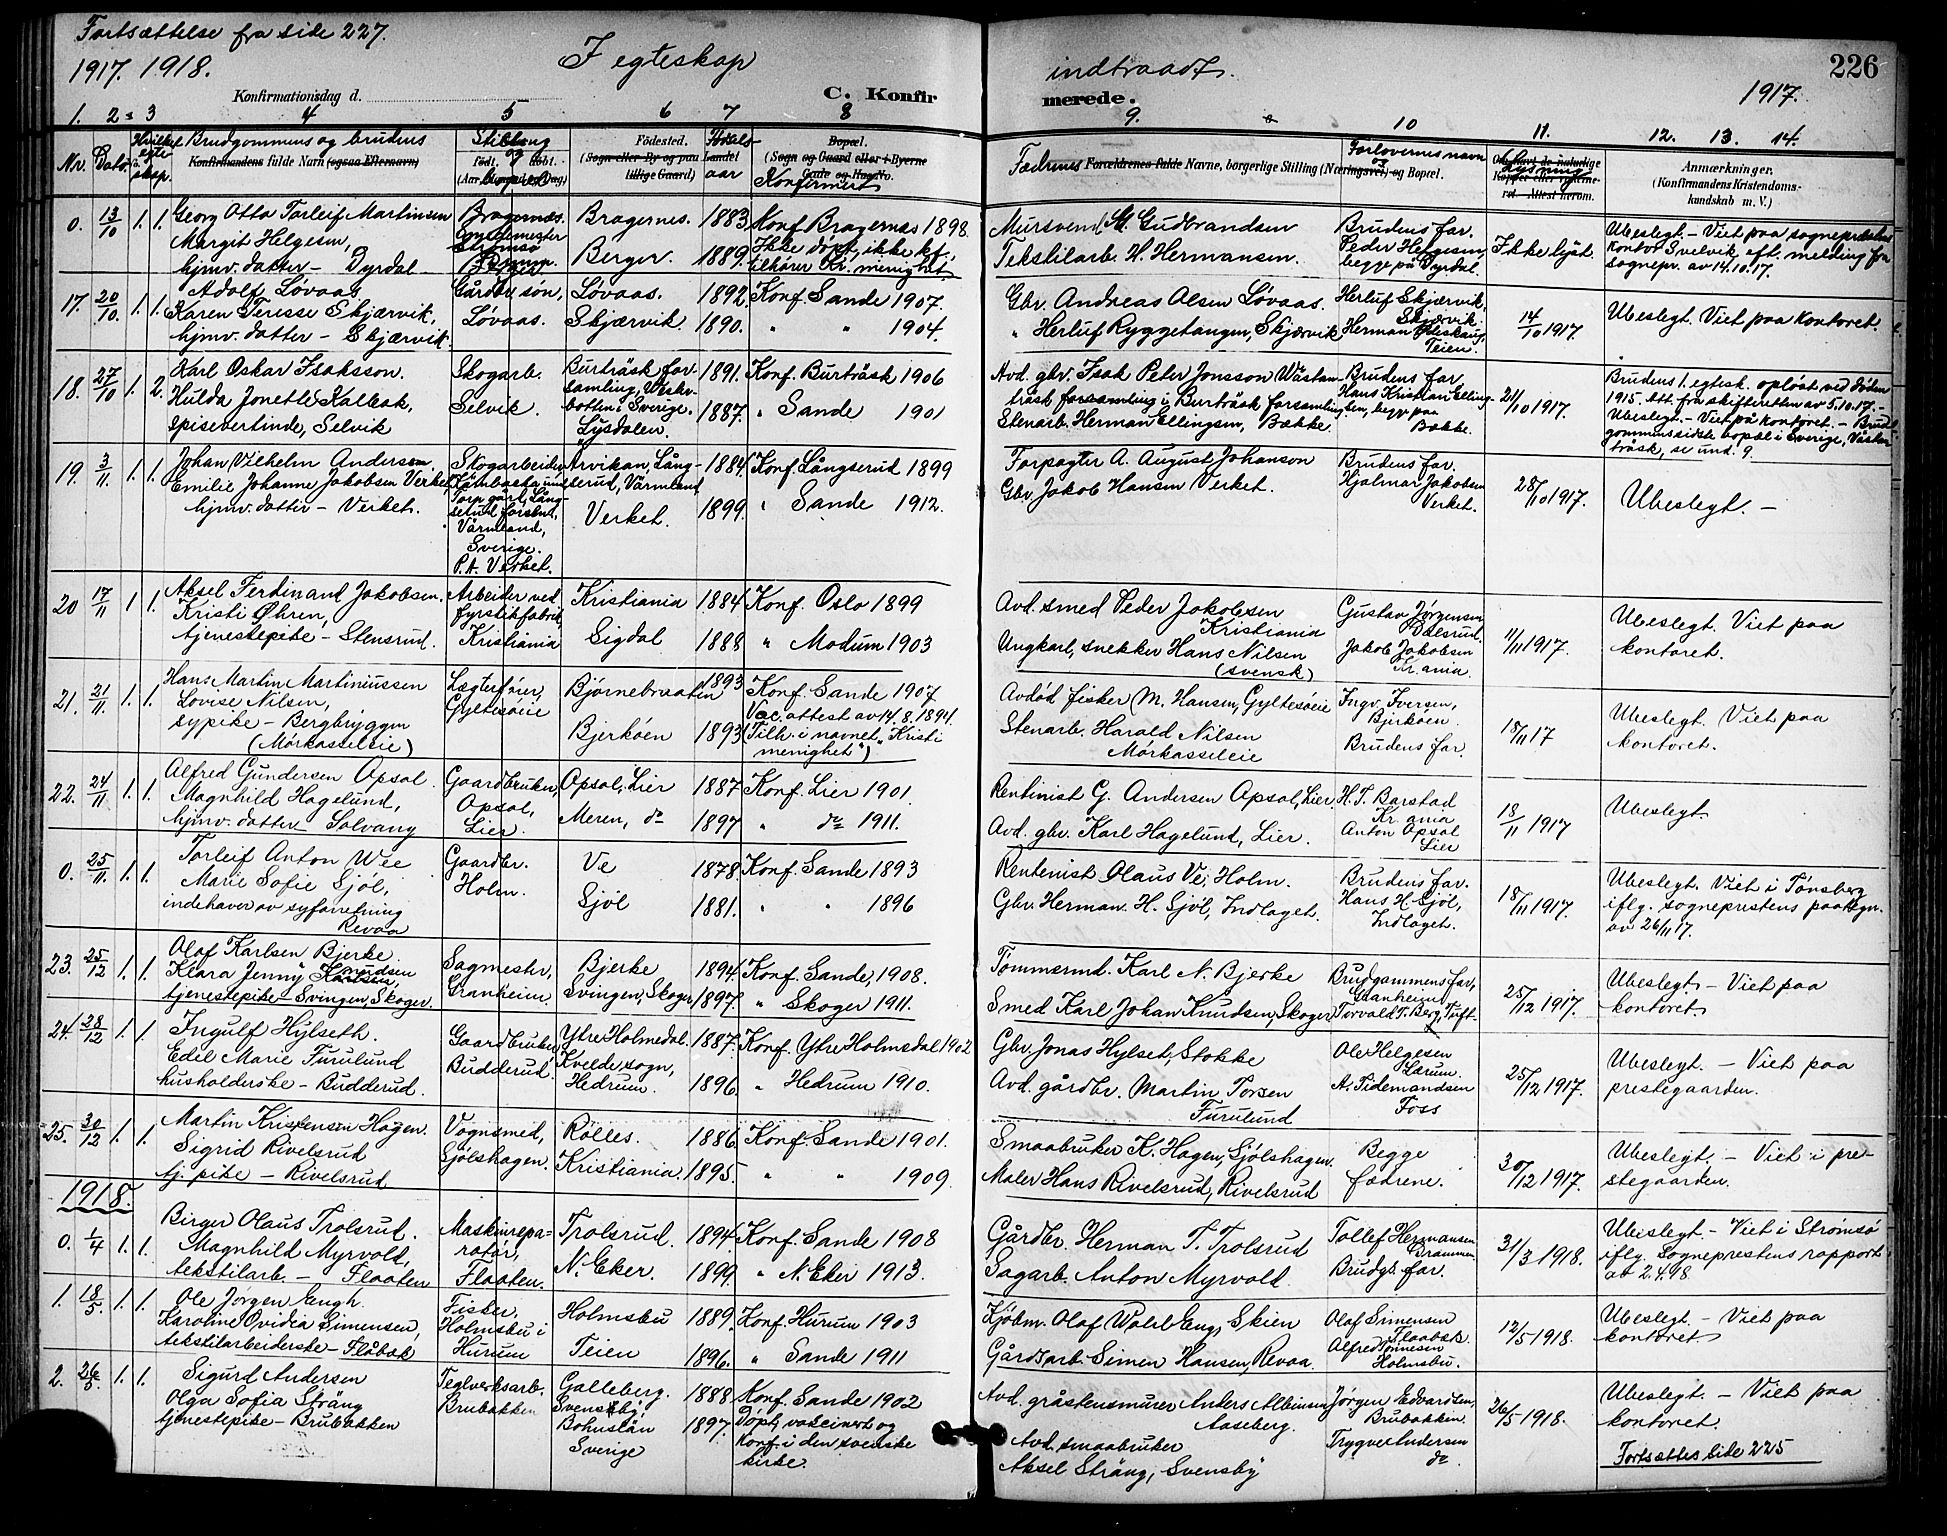 Fortsættelse fra side 227.
1917. 1918.
I egteskap
indtraadt.
226
1917.
Konfirmationsdag d.
C. Konfir
merede.
1. 2 3 4 5 6 7 8
9. 10 11. 12. 13. 14.
Nr. Dato. Hvilket egteskap. Brudgommens og brudens
Konfirmandens fulde Navn (ogsaa Efternavn)
Stilling og bopæl
Fødested.
(Sogn eller By og paa Landet tillige Gaard)
Fødselsaar
Bopæl.
(Sogn og Gaard eller i Byerne Gade og Hus No.
Konfirmert
Fædrenes Forældrenes fulde Navne, borgerlige Stilling (Næringsvei) og Bopæl.
Forlovernes navn og
Lysning
Anmærkninger.
(Konfirmandens Kristendomskundskab m. V.)
0. 13/10 1. 1. Georg Otto Torleif Martinsen
Margit Helgesen,
hjmv. datter – Dyrdal
Bragernæs.
Strømsø
Bragernes. 1883. Konf. Bragernæs 1898.
Berger. 1889. Ikke døpt, ikke kf.,
tilhører Kr. menighet
Mursvend M. Gudbrandsen
Tekstilarb. H. Hermansen.
Brudens far.
Peder Helgesen,
begge på Dyrdal
Ikke lyst.
Ubeslegt. – Viet paa sogneprestens
kontor Svelvik eft. melding fra
sognepr. av 14.10.17.
17. 20/10. 1. 1. Adolf Løvaas.
Karen Terisse Skjærvik,
hjmv. datter – Skjærvik
Gårdbr. søn,
Løvaas.
Løvaas. 1892. Konf. Sande 1907.
Skjærvik. 1890. " " 1904.
Gbr. Andreas Olsen Løvaas.
" Herluf Ryggetangen, Skjærvik
Herluf Skjærvik,
Skjærvik
Herman
Teien.
14/10 1917.
Ubeslegt. Viet paa kontoret.
18. 27/10 1. 2. Karl Oskar Isaksson.
Hulda Jonette Kalleok,
spisevertinde, Selvik
Skogarb.
Selvik.
Burträsk forsamling, Westerbotten i Sverige.
Lysdalen.
1891. Konf. Burträsk 1906
1887. " Sande 1901
Avd. gbr. Isak Peter Jonsson Wästanträsk forsamling i Burträsk forsamling
Stenarb. Herman Ellingsen, Bække
Brudens far.
Hans Kristian Ellingsen, begge paa
Bække.
21/10 1917.
Brudens 1. egtesk. opløst ved døden
1915. Att. fra skifteretten av 5.10.17. –
Ubeslegt. – Viet på kontoret. – Brudgommens sidste bopæl i Sverige, Västanträsk, se und. 9.
19. 3/11. 1. 1. Johan Vilhelm Andersson.
Emilie Johanne Jakobsen Verket,
hjmv. datter – Verket.
Skogarbeider
Torp gård, Långserud forsaml.,
Värmland,
Sverige.
P.A. Verket.
Arvikan, Långserud, Värmland
Verket.
1884. Konf. Långserud 1899
1899. " Sande 1912.
Forpagter A. August Johanson
Gbr. Jakob Hansen Verket.
Brudens far.
Hjalmar Jakobsen
Verket.
28/10 1917.
Ubeslegt. –
20 17/11 1 1. Aksel Ferdinand Jakobsen.
Kristi Øhren,
tjenestepike – Stensrud.
Arbeider ved
fyrstikfabrik,
Kristiania
Kristiania 1884 Konf. Oslo 1899
Sigdal 1888 " Modum 1903
Avd. smed Peder Jakobsen
Kristiania
Ungkarl, snekker Hans Nilsen
(svensk)
Gustav Jørgensen
Jakob Jakobsen
Kr.ania.
11/11 1917.
Ubeslegt. Viet paa
kontoret.
21. 21/11. 1. 1. Hans Martin Martiniussen
Lovise Nilsen,
sypike – Bergbryggen
(Mörkasseleie)
Lægterfører,
Gyltesøeie
Bjørnebraaten 1893 Konf. Sande 1907
Bjerkøen 1893 Vac. attest av 14.8.1894.
(Tilh. i navnet "Kristi
menighet")
Avdød fisker M. Hansen, Gyltesøeie
Stenarb. Harald Nilsen
Mörkasseleie
Ingv. Iversen,
Bjerkøen.
Brudens far.
18/11 17
Ubeslegt. Viet paa
kontoret.
22. 24/11 1. 1. Alfred Gundersen Opsal.
Magnhild Hagelund,
hjmv. datter – Solvang
Gaardbruker,
Opsal,
Lier.
Opsal, Lier 1887 Konf. Lier 1901.
Meren, do 1897 " do 1911.
Rentinist G. Andersen Opsal, Lier.
Avd. gbr. Karl Hagelund, Lier.
H. T. Barstad
Kr.ania
Anton Opsal
Lier
18/11 1917
Ubeslegt.
0. 25/11. 1. 1. Torleif Anton Wee
Marie Sofie Sjøl,
indehaver av syforretning
Revaa
Gaardbr.
Holm.
Ve 1878. Konf. Sande 1893
Sjöl 1881. " " 1896
Rentenist Olaus Ve, Holm.
Gbr. Herman H. Sjöl, Indlaget.
Brudens far.
Hans H. Sjöl,
Indlaget.
18/11 1917.
Ubeslegt. Viet i Tønsberg
iflg. sogneprestens paategn.
av 26/11 17.
23. 25/12 1. 1. Olaf Karlsen Bjerke.
Klara Jenny Knudsen
tjenestepike – Svingen, Skoger.
Sagmester,
Granheim.
Bjerke 1894. Konf. Sande, 1908.
Svingen, Skoger 1897. " Skoger 1911.
Tømmermd. Karl N. Bjerke
Smed Karl Johan Knudsen, Skoger
Brudgommens far,
Granheim
Torvald T. Berg, Tuft.
25/12 1917.
Ubeslegt. – Viet paa
kontoret
24. 28/12 1. 1. Ingulf Hylseth.
Edil Marie Furulund
husholderske – Budderud.
Gaardbruker
Budderud.
Ytre Holmedal. 1887. Konf. Ytre Holmsdal 1902
Kvelde sogn,
Hedrum. 1896. " Hedrum 1910.
Gbr. Jonas Hylset, Stokke
Avd. gårdbr. Martin Torsen
Furulund
Ole Helgesen
Lærum.
A. Tidemandsen
Foss
25/12 1917.
Ubeslegt. – Viet paa
prestegaarden.
25. 30/12 1. 1. Martin Kristensen Hagen.
Sigrid Rivelsrud
tj. pike – Rivelsrud
Vognsmed,
Sjølshagen.
Rölles. 1886. Konf. Sande 1901.
Kristiania. 1895. " " 1909.
Smaabruker K. Hagen, Sjølshagen.
Maler Hans Rivelsrud, Rivelsrud
Begge
fædrene.
30/12 1917.
Ubeslegt. – Viet i prestegaarden.
1918.
0. 1/4 1. 1. Birger Olaus Trolsrud.
Magnhild Myrvold,
tekstilarb. – Flaaten
Maskinreparatør,
Flaaten.
Trolsrud. 1894. Konf. Sande 1908
N. Eker. 1899. " N. Eker 1913.
Gårdbr. Herman T. Trolsrud
Sagarb. Anton Myrvold.
Tollef Hermansen
Drammen.
Brudgs. far.
31/3 1918.
Ubeslegt. – Viet i Strømsø
iflg. sogneprestens rapport
av 2.4.18.
1. 18/5. 1. 1. Ole Jørgen Engh.
Karoline Ovidia Simensen,
tekstilarbeiderske – Flåbak
Fisker,
Holmsbu i
Hurum
Holmsbu 1889. Konf. Hurum 1903
Teien 1896. " Sande 1911
Kjøbm. Olaf Wahl Eng, Skien
Gårdsarb. Simen Hansen, Revaa.
Olaf Simensen
Flaabak.
Alfred Tønnesen
Holmsbu.
12/5 1918.
Ubeslegt. – Viet paa
kontoret
2. 26/5. 1. 1. Sigurd Andersen
Olga Sofia Sträng
tjenestepike – Brubakken
Teglverksarb.
Brubakken
Galleberg. 1888. Konf. Sande 1902
Svensby
Bohuslän
Sverige
1897. Döpt, vakcinert og
konf. i den svenske
kirke.
Avd. gråstensmurer Anders Albinsen
Aaseberg.
Avd. smaabruker
Aksel Sträng, Svensby
Jørgen Edvardsen,
Brubakken.
Trygve Andersen
do.
26/5 1918.
Ubeslegt. – Viet paa
kontoret.
Fortsættes side 225